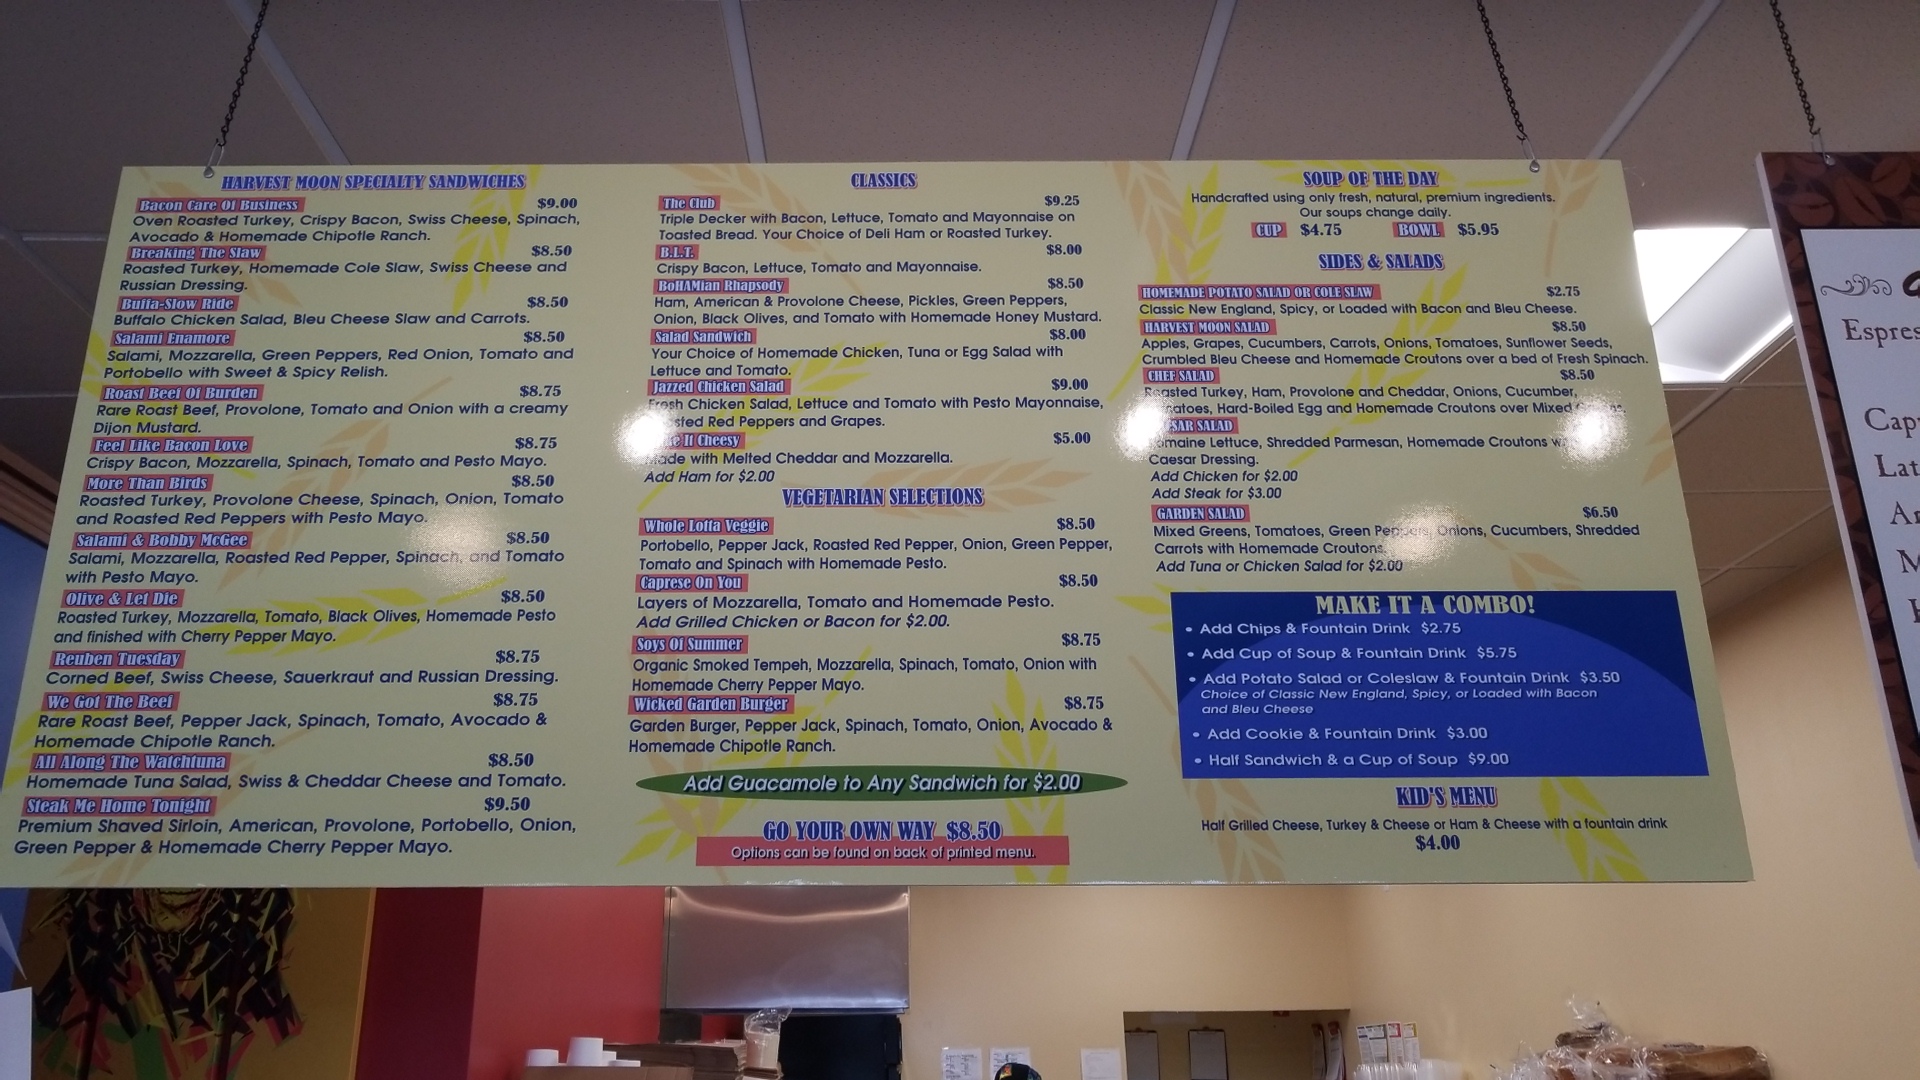 HARVEST MOON SPECIALTY SANDWICHES
Bacon Care Of Business $9.00
Oven Roasted Turkey, Crispy Bacon, Swiss Cheese, Spinach,
Avocado & Homemade Chipotle Ranch.
Breaking The Slaw $8.50
Roasted Turkey, Homemade Cole Slaw, Swiss Cheese and
Russian Dressing.
Buffa-Slow Ride $8.50
Buffalo Chicken Salad, Bleu Cheese Slaw and Carrots.
Salami Enamore $8.50
Salami, Mozzarella, Green Peppers, Red Onion, Tomato and
Portobello with Sweet & Spicy Relish.
Roast Beef Of Burden $8.75
Rare Roast Beef, Provolone, Tomato and Onion with a creamy
Dijon Mustard.
Feel Like Bacon Love $8.75
Crispy Bacon, Mozzarella, Spinach, Tomato and Pesto Mayo.
More Than Birds $8.50
Roasted Turkey, Provolone Cheese, Spinach, Onion, Tomato
and Roasted Red Peppers with Pesto Mayo.
Salami & Bobby McGee $8.50
Salami, Mozzarella, Roasted Red Pepper, Spinach, and Tomato
with Pesto Mayo.
Olive & Let Die $8.50
Roasted Turkey, Mozzarella, Tomato, Black Olives, Homemade Pesto
and finished with Cherry Pepper Mayo.
Reuben Tuesday $8.75
Corned Beef, Swiss Cheese, Sauerkraut and Russian Dressing.
We Got The Beef $8.75
Rare Roast Beef, Pepper Jack, Spinach, Tomato, Avocado &
Homemade Chipotle Ranch.
All Along The Watchtuna $8.50
Homemade Tuna Salad, Swiss & Cheddar Cheese and Tomato.
Steak Me Home Tonight $9.50
Premium Shaved Sirloin, American, Provolone, Portobello, Onion,
Green Pepper & Homemade Cherry Pepper Mayo.
CLASSICS
The Club $9.25
Triple Decker with Bacon, Lettuce, Tomato and Mayonnaise on
Toasted Bread. Your Choice of Deli Ham or Roasted Turkey.
B.L.T. $8.00
Crispy Bacon, Lettuce, Tomato and Mayonnaise.
BoHAMian Rhapsody $8.50
Ham, American & Provolone Cheese, Pickles, Green Peppers,
Onion, Black Olives, and Tomato with Homemade Honey Mustard.
Salad Sandwich $8.00
Your Choice of Homemade Chicken, Tuna or Egg Salad with
Lettuce and Tomato.
Jazzed Chicken Salad $9.00
Fresh Chicken Salad, Lettuce and Tomato with Pesto Mayonnaise,
Red Peppers and Grapes.
It Cheesy $5.00
Made with Melted Cheddar and Mozzarella.
Add Ham for $2.00
VEGETARIAN SELECTIONS
Whole Lotta Veggie $8.50
Portobello, Pepper Jack, Roasted Red Pepper, Onion, Green Pepper,
Tomato and Spinach with Homemade Pesto.
Caprese On You $8.50
Layers of Mozzarella, Tomato and Homemade Pesto.
Add Grilled Chicken or Bacon for $2.00.
Soys Of Summer $8.75
Organic Smoked Tempeh, Mozzarella, Spinach, Tomato, Onion with
Homemade Cherry Pepper Mayo.
Wicked Garden Burger $8.75
Garden Burger, Pepper Jack, Spinach, Tomato, Onion, Avocado &
Homemade Chipotle Ranch.
Add Guacamole to Any Sandwich for $2.00
GO YOUR OWN WAY $8.50
Options can be found on back of printed menu.
SOUP OF THE DAY
Handcrafted using only fresh, natural, premium ingredients.
Our soups change daily.
CUP $4.75 BOWL $5.95
SIDES & SALADS
HOMEMADE POTATO SALAD OR COLE SLAW $2.75
Classic New England, Spicy, or Loaded with Bacon and Bleu Cheese.
HARVEST MOON SALAD $8.50
Apples, Grapes, Cucumbers, Carrots, Onions, Tomatoes, Sunflower Seeds,
Crumbled Bleu Cheese and Homemade Croutons over a bed of Fresh Spinach.
CHEF SALAD $8.50
Roasted Turkey, Ham, Provolone and Cheddar, Onions, Cucumber,
Tomatoes, Hard-Boiled Egg and Homemade Croutons over Mixed
SALAD
Romaine Lettuce, Shredded Parmesan, Homemade Croutons
Caesar Dressing.
Add Chicken for $2.00
Add Steak for $3.00
GARDEN SALAD $6.50
Mixed Greens, Tomatoes, Green Peppers, Onions, Cucumbers, Shredded
Carrots with Homemade Croutons.
Add Tuna or Chicken Salad for $2.00
MAKE IT A COMBO!
• Add Chips & Fountain Drink $2.75
• Add Cup of Soup & Fountain Drink $5.75
• Add Potato Salad or Coleslaw & Fountain Drink $3.50
Choice of Classic New England, Spicy, or Loaded with Bacon
and Bleu Cheese
• Add Cookie & Fountain Drink $3.00
• Half Sandwich & a Cup of Soup $9.00
KID'S MENU
Half Grilled Cheese, Turkey & Cheese or Ham & Cheese with a fountain drink
$4.00